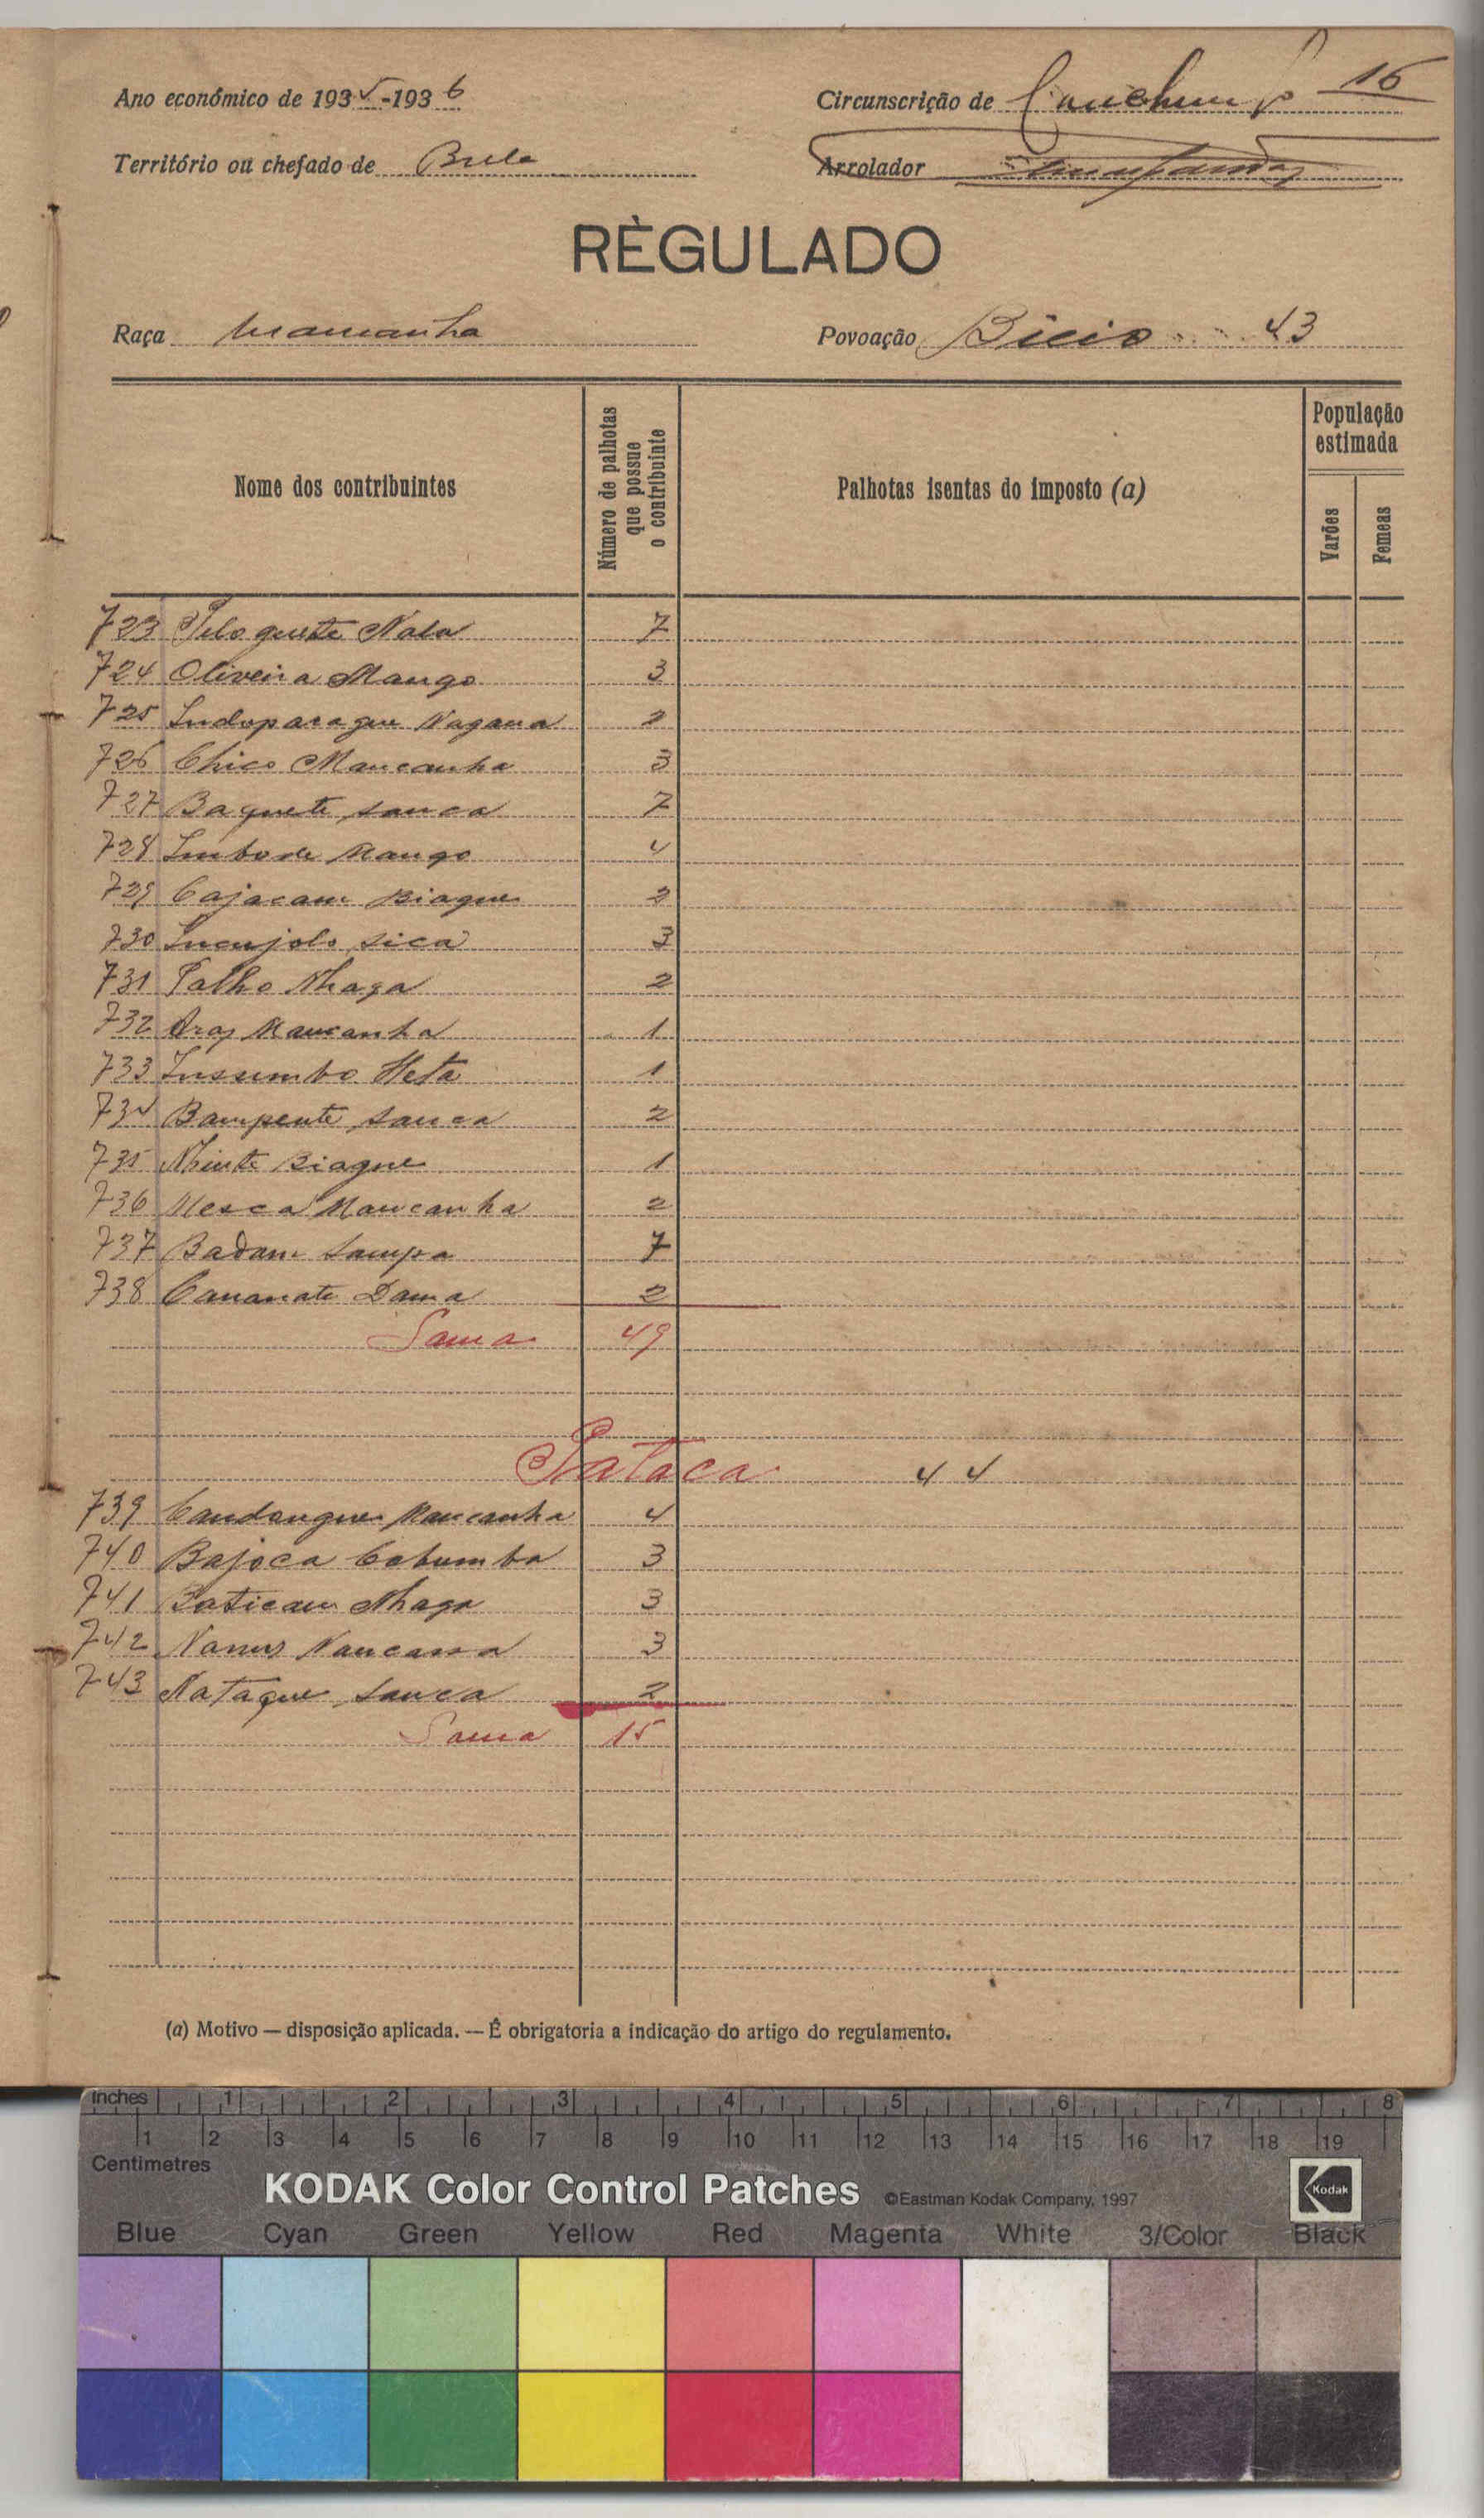 16
Ano económico de 1935-1936
Circunscrição de Canchungo
Território ou chefado de Bula
Arrolador
RÈGULADO
Raça Mancanha
Povoação Bicio 43
Nome dos contribuintes
Número de palhotas que possue o contribuinte
Palhotas isentas do imposto (a)
População estimada
Varões
Femeas
723 Nala 7
724 Oliveira Mango 3
725 2
726 Chico Mancanha 3
727 Baquete Sanca 7
728 Mango 4
729 Cajacam Biague 2
730 Incujolo Sica 3
731 Palho Nhaga 2
732 Mancanha 1
733 Insumbo 1
734 Bampente Sanca 2
735 Nhinte Biague 1
736 Mesca Mancanha 2
737 Badam Sampa 7
738 Cananate Dama 2
Soma 49
Pataca 44
739 Candangue Mancanha 4
740 Bajoca Catumba 3
741 Baticam Nhaga 3
742 Nanus Nancassa 3
743 Nataque Sanca 2
Soma 15
(a) Motivo — disposição aplicada. — É obrigatoria a indicação do artigo do regulamento.
Inches 1 2 3 4 5 6 7 8
1 2 3 4 5 6 7 8 9 10 11 12 13 14 15 16 17 18 19
Centimetres
KODAK Color Control Patches ©Eastman Kodak Company, 1997 Kodak
Blue Cyan Green Yellow Red Magenta White 3/Color Black